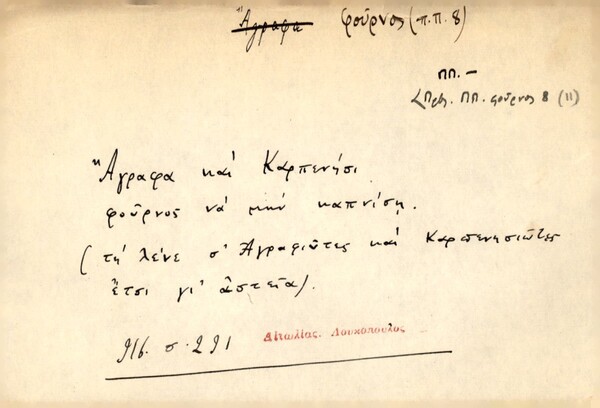 Ἄγραφα φοῦρνος (π.π. 8)
ΠΠ. —
<Πρβ. ΠΠ. φοῦρνος 8 (11)
Ἄγραφα καὶ Καρπενήσι
φοῦρνος νὰ μὴν καπνίσῃ.
(τὴ λένε σ' Ἀγραφιῶτες καὶ Καρπενησιῶτες
ἔτσι γι' ἀστεῖα).
916. σ. 291 Αἰτωλίας. Λουκόπουλος